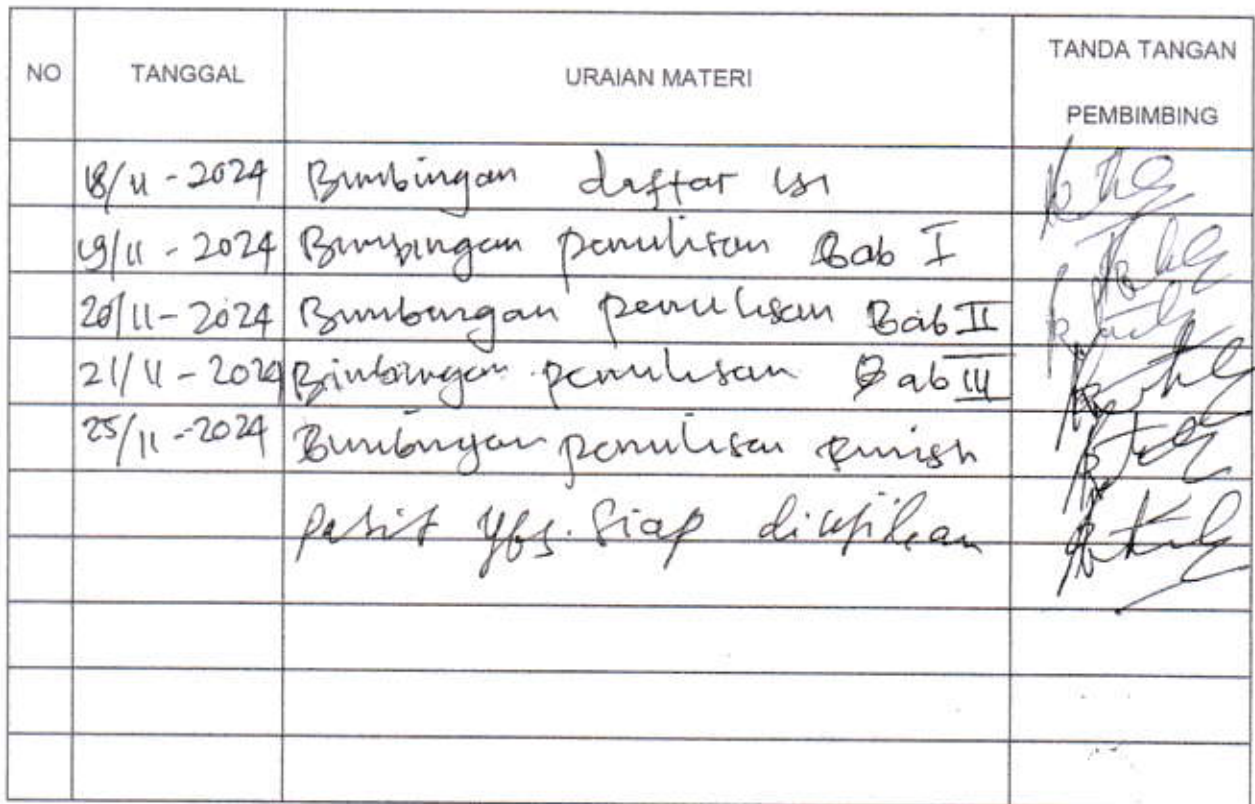 NO TANGGAL URAIAN MATERI TANDA TANGAN PEMBIMBING
18/11-2024 Bimbingan daftar isi
19/11-2024 Bimbingan penulisan Bab I
20/11-2024 Bimbingan penulisan Bab II
21/11-2024 Bimbingan penulisan Bab III
25/11-2024 Bimbingan penulisan Finish
siap diujikan